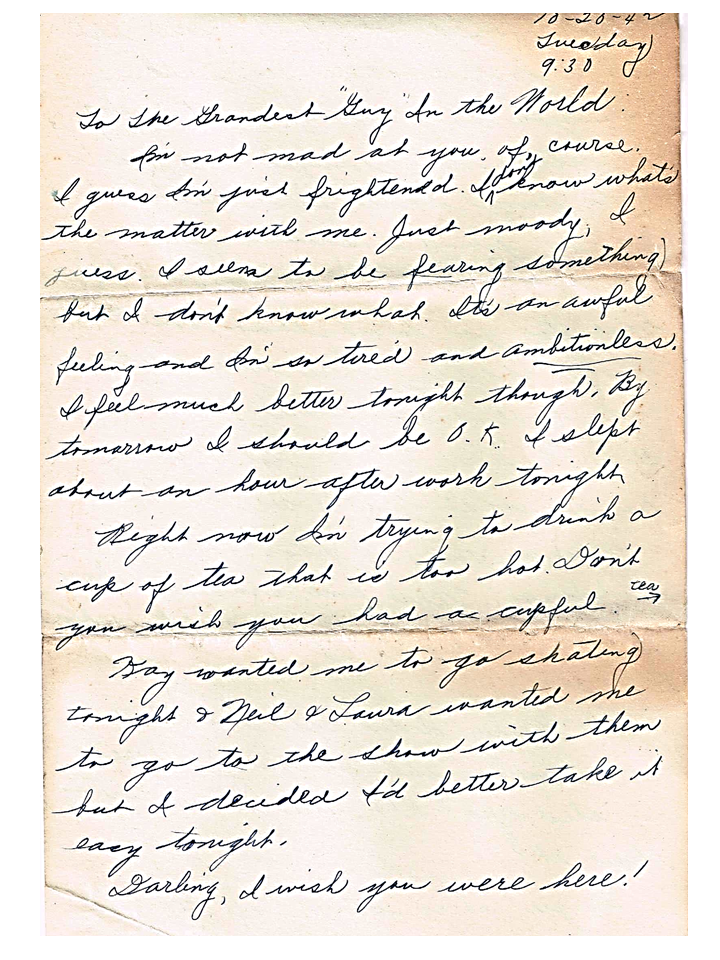 10-20-42
Tuesday
9:30
To The Grandest "Guy" In the World:
I'm not mad at you, of course.
I guess I'm just frightened. I don't know what's
the matter with me. Just moody, I
guess. I seem to be fearing something
but I don't know what. It's an awful
feeling and I'm so tired and ambitionless.
I feel much better tonight though. By
tomorrow I should be O.K. I slept
about an hour after work tonight.
Right now I'm trying to drink a
cup of tea that is too hot. Don't
you wish you had a cupful. tea →
Kay wanted me to go skating
tonight & Neil & Laura wanted me
to go to the show with them
but I decided I'd better take it
easy tonight.
Darling, I wish you were here!